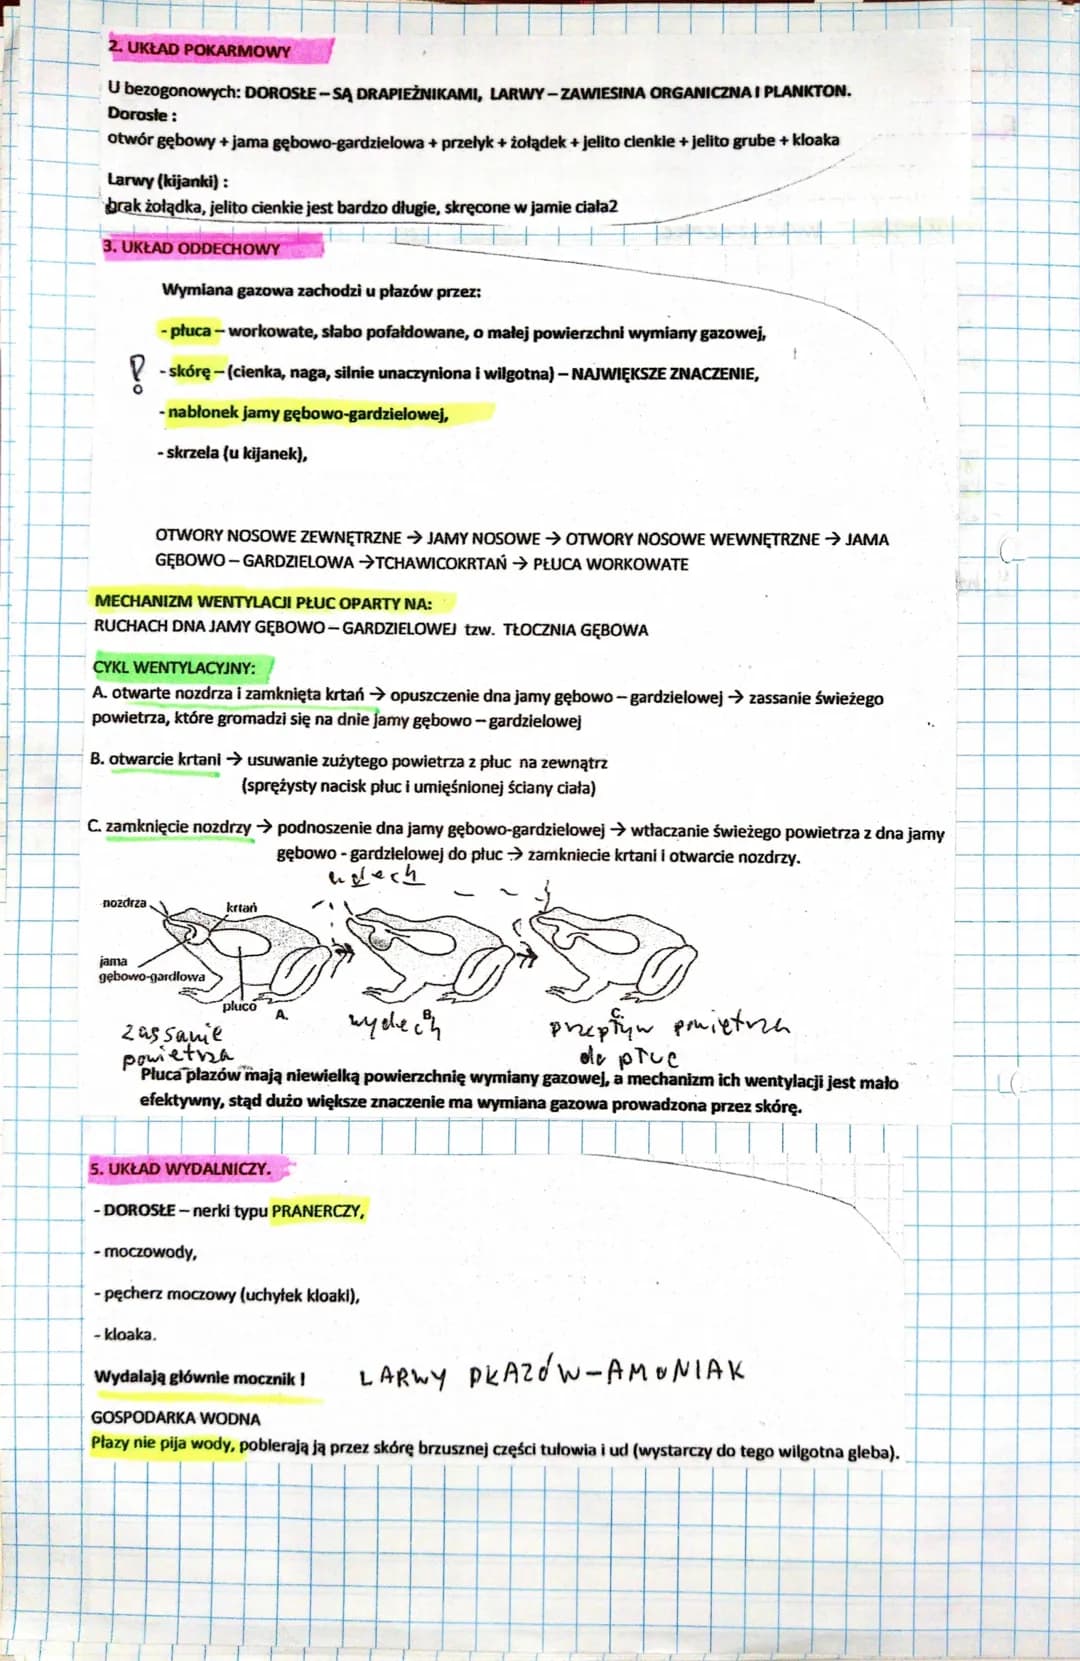 2. UKŁAD POKARMOWY
U bezogonowych: DOROSŁE – SĄ DRAPIEŻNIKAMI, LARWY – ZAWIESINA ORGANICZNA I PLANKTON.
Dorosłe :
otwór gębowy + jama gębowo-gardzielowa + przełyk + żołądek + jelito cienkie + jelito grube + kloaka
Larwy (kijanki) :
brak żołądka, jelito cienkie jest bardzo długie, skręcone w jamie ciała2
3. UKŁAD ODDECHOWY
Wymiana gazowa zachodzi u płazów przez:
- płuca – workowate, słabo pofałdowane, o małej powierzchni wymiany gazowej,
- skórę – (cienka, naga, silnie unaczyniona i wilgotna) – NAJWIĘKSZE ZNACZENIE,
- nabłonek jamy gębowo-gardzielowej,
- skrzela (u kijanek),
OTWORY NOSOWE ZEWNĘTRZNE → JAMY NOSOWE → OTWORY NOSOWE WEWNĘTRZNE → JAMA
GĘBOWO – GARDZIELOWA →TCHAWICOKRTAŃ → PŁUCA WORKOWATE
MECHANIZM WENTYLACJI PŁUC OPARTY NA:
RUCHACH DNA JAMY GĘBOWO – GARDZIELOWEJ tzw. TŁOCZNIA GĘBOWA
CYKL WENTYLACYJNY:
A. otwarte nozdrza i zamknięta krtań → opuszczenie dna jamy gębowo – gardzielowej → zassanie świeżego
powietrza, które gromadzi się na dnie jamy gębowo – gardzielowej
B. otwarcie krtani → usuwanie zużytego powietrza z płuc na zewnątrz
(sprężysty nacisk płuc i umięśnionej ściany ciała)
C. zamknięcie nozdrzy → podnoszenie dna jamy gębowo-gardzielowej → wtłaczanie świeżego powietrza z dna jamy
gębowo - gardzielowej do płuc → zamkniecie krtani i otwarcie nozdrzy.
nozdrza
krtań
jama
gębowo-gardłowa
płuco
A.
B.
C.
zassanie
powietrza
wydech
przepływ powietrza
do płuc
Płuca płazów mają niewielką powierzchnię wymiany gazowej, a mechanizm ich wentylacji jest mało
efektywny, stąd dużo większe znaczenie ma wymiana gazowa prowadzona przez skórę.
5. UKŁAD WYDALNICZY.
- DOROSŁE – nerki typu PRANERCZY,
- moczowody,
- pęcherz moczowy (uchyłek kloaki),
- kloaka.
Wydalają głównie mocznik ! LARWY PŁAZÓW – AMONIAK
GOSPODARKA WODNA
Płazy nie pija wody, pobierają ją przez skórę brzusznej części tułowia i ud (wystarczy do tego wilgotna gleba).